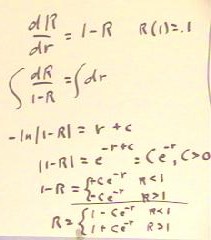 dR/dr = 1-R R(1)=.1
∫ dR/1-R = ∫ dr
-ln|1-R| = r + c
|1-R| = e^-r+c = Ce^-r, C>0
1-R = { +Ce^-r R<1
-Ce^-r R>1
R = { 1 - Ce^-r R<1
1 + Ce^-r R>1